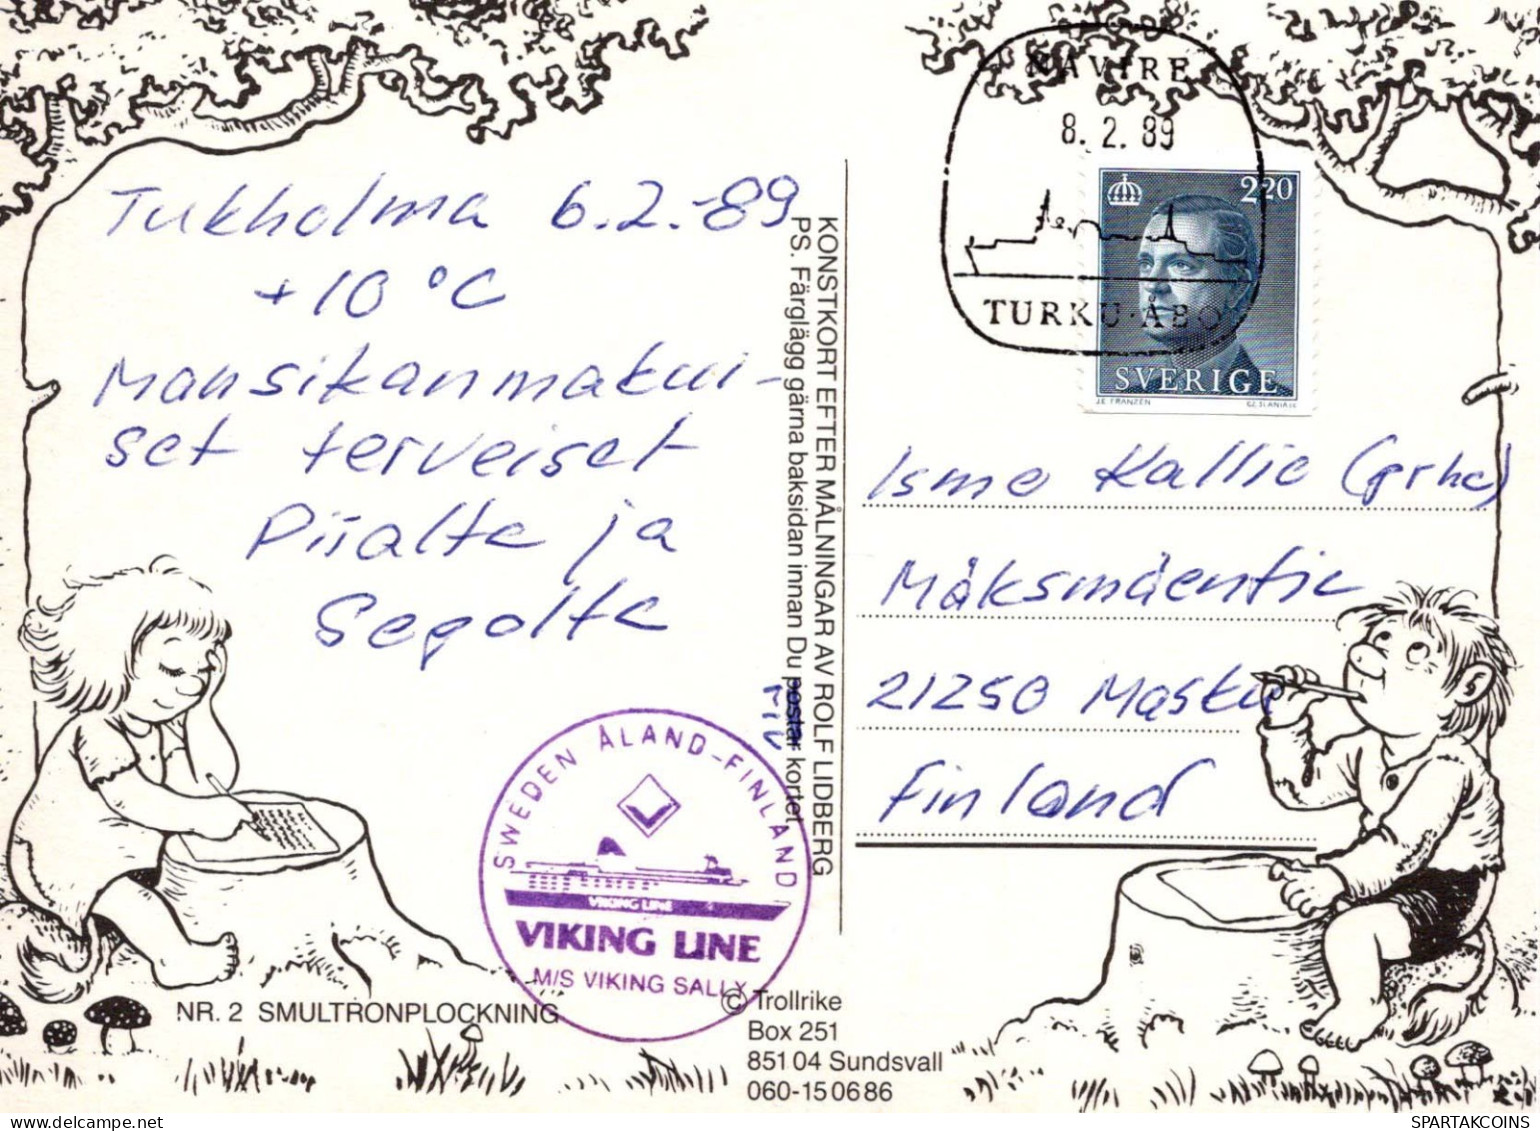 Tukholma 6.2.-89
+10 °C
Mansikanmakui-
set terveiset
Piialta ja
Sepolta
KONSTKORT EFTER MÅLNINGAR AV ROLF LIDBERG
PS. Färglägg gärna baksidan innan Du postar kortet
NAVIRE
8.2.89
TURKU·ÅBO
2.20
SVERIGE
JE FRANZÉN
CZ.SLANIA
Kallio
21250 Masku
Finland
SWEDEN ÅLAND-FINLAND
VIKING LINE
VIKING LINE
M/S VIKING SALLY
NR. 2 SMULTRONPLOCKNING
© Trollrike
Box 251
851 04 Sundsvall
060-15 06 86
SPARTAKCOINS